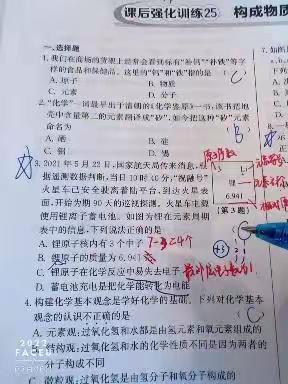 课后强化训练25 构成物质
一、选择题
1. 我们在商场的货架上经常会看到标有“补钙”“补铁”等字
样的食品和保健品。这里的“钙”和“铁”指的是
A. 原子 B. 物质
C. 元素 D. 分子
C
2. “化学”一词最早出于清朝的《化学鉴原》一书,该书把地
壳中含量第二的元素翻译成“矽”,如今把这种“矽”元素
命名为
A. 硒 B. 硅
C. D. 锡
B
原子序数
3. 2021年5月22日,国家航天局传来消息,根
据遥测数据判断,当日10时40分,“祝融号”
火星车已安全驶离着陆平台,到达火星表
面,开始为期90天的巡视探测。火星车电源
使用锂离子蓄电池。如图为锂在元素周期
表中的信息,下列说法正确的是
Li
锂
6.941
[第3题]
A. 锂原子核内有3个中子 7-3=4个
B. 锂原子的质量为6.941
C. 锂原子在化学反应中易失去电子
D. 蓄电池充电是把化学能转化为电能
+3 2 1
4. 构建化学基本观念是学好化学的基础。下列对化学基本
观念的认识不正确的是
A. 元素观:过氧化氢和水都是由氢元素和氧元素组成的
结构观:过氧化氢和水的化学性质不同是因为两者的
分子构成不同
微粒观:过氧化氢是由氢分子和氧分子构成的